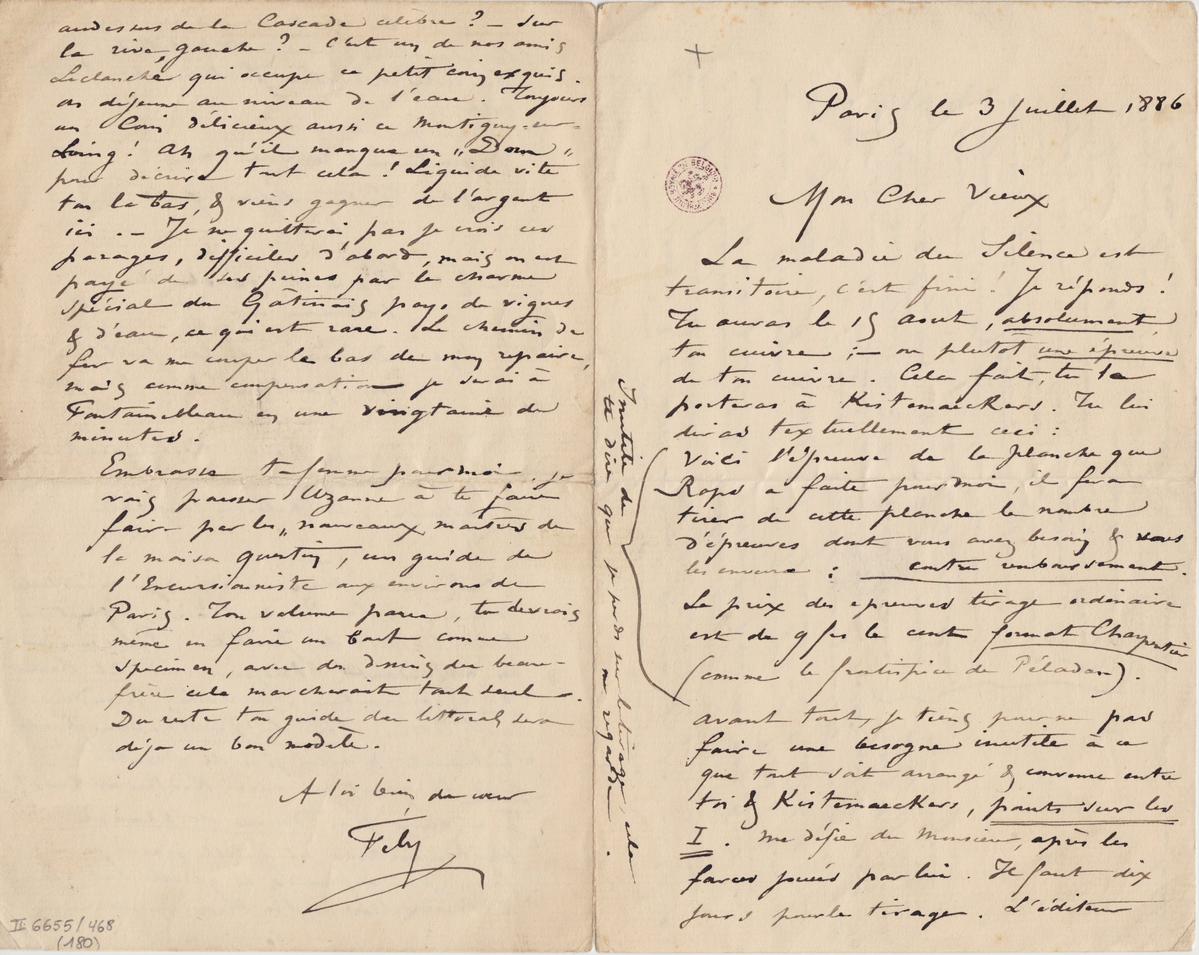 Paris le 3 Juillet 1886
Mon Cher Vieux
La maladie du Silence est
transitoire, c'est fini ! Je réponds !
Tu auras le 15 Aout, absolument
ton cuivre ; – ou plutot une épreuve
de ton cuivre. Cela fait, tu la
porteras à Kistemaeckers. Tu lui
diras textuellement ceci :
Voici l'épreuve de la planche que
Rops a faite pour moi, il fera
tirer de cette planche le nombre
d'épreuves dont vous avez besoin & vous
les enverra : contre remboursement.
Le prix des épreuves tirage ordinaire
est de 9 frs le cent format Charpentier
(comme le frontispice de Péladan).
Inutile de
te dire que je perds sur le tirage cela
me regarde.
avant tout, je tiens pour ne pas
faire une besogne inutile à ce
que tout soit arrangé & convenu entre
toi & Kistemaeckers, points sur les
I. me défie du Monsieur, après les
farces jouées par lui. Il faut dix
jours pour le tirage. L'éditeur
au dessus de la Cascade célèbre ? – Sur
la rive gauche ? – C'est un de nos amis
Leclanché qui occupe ce petit coin exquis.
on déjeune au niveau de l'eau. Toujours
un Coin délicieux aussi ce Montigny-sur-
Loing ! Ah qu'il manque un „Dom"
pour décrire tout cela ! Liquide vite
ton la bas, & viens gagner de l'argent
ici. – Je ne quitterai pas je crois ces
parages, difficiles d'abord, mais on est
payé de ses peines par le charme
spécial du Gâtinais pays de vignes
& d'eau, ce qui est rare. Le chemin de
fer va me couper le bas de mon repaire,
mais comme compensation je serai à
Fontainebleau en une vingtaine de
minutes.
Embrasse ta femme pour moi, je
vais pousser Uzanne à te faire
faire par les „nouveaux maitres de
la maison Quantin, un guide de
l'Excursionniste aux environs de
Paris. Ton volume paru, tu devrais
même en faire un bout comme
specimen, avec des dessins du beau-
frère cela marcherait tout seul.
Du reste ton guide du littoral sera
déjà un bon modèle.
A toi bien du coeur
Fély
II 6655/468
(180)